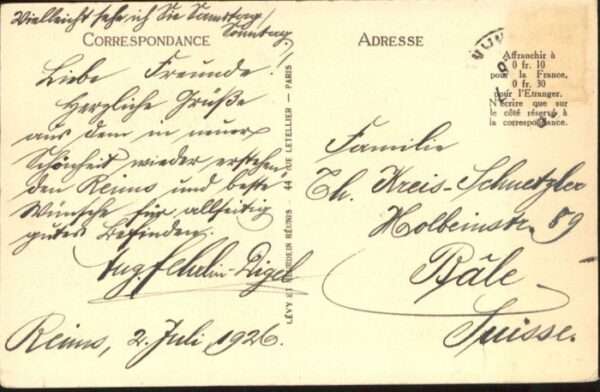 Vielleicht sehe ich Sie Samstag/
Sonntag!
CORRESPONDANCE
Liebe Freunde!
Herzliche Grüße
aus dem in neuer
Schönheit wieder erstehen-
den Reims und beste
Wünsche für allseitig
gutes Befinden.
Reims, 2. Juli 1926.
LÉVY ET NEURDEIN RÉUNIS — 44 RUE LETELLIER — PARIS
ADRESSE
Affranchir à
0 fr. 10
pour la France,
0 fr. 30
pour l'Etranger.
N'écrire que sur
le côté réservé à
la correspondance.
Familie
Th. Kreis-Schnetzler
Holbeinstr. 89
Bâle
Suisse.